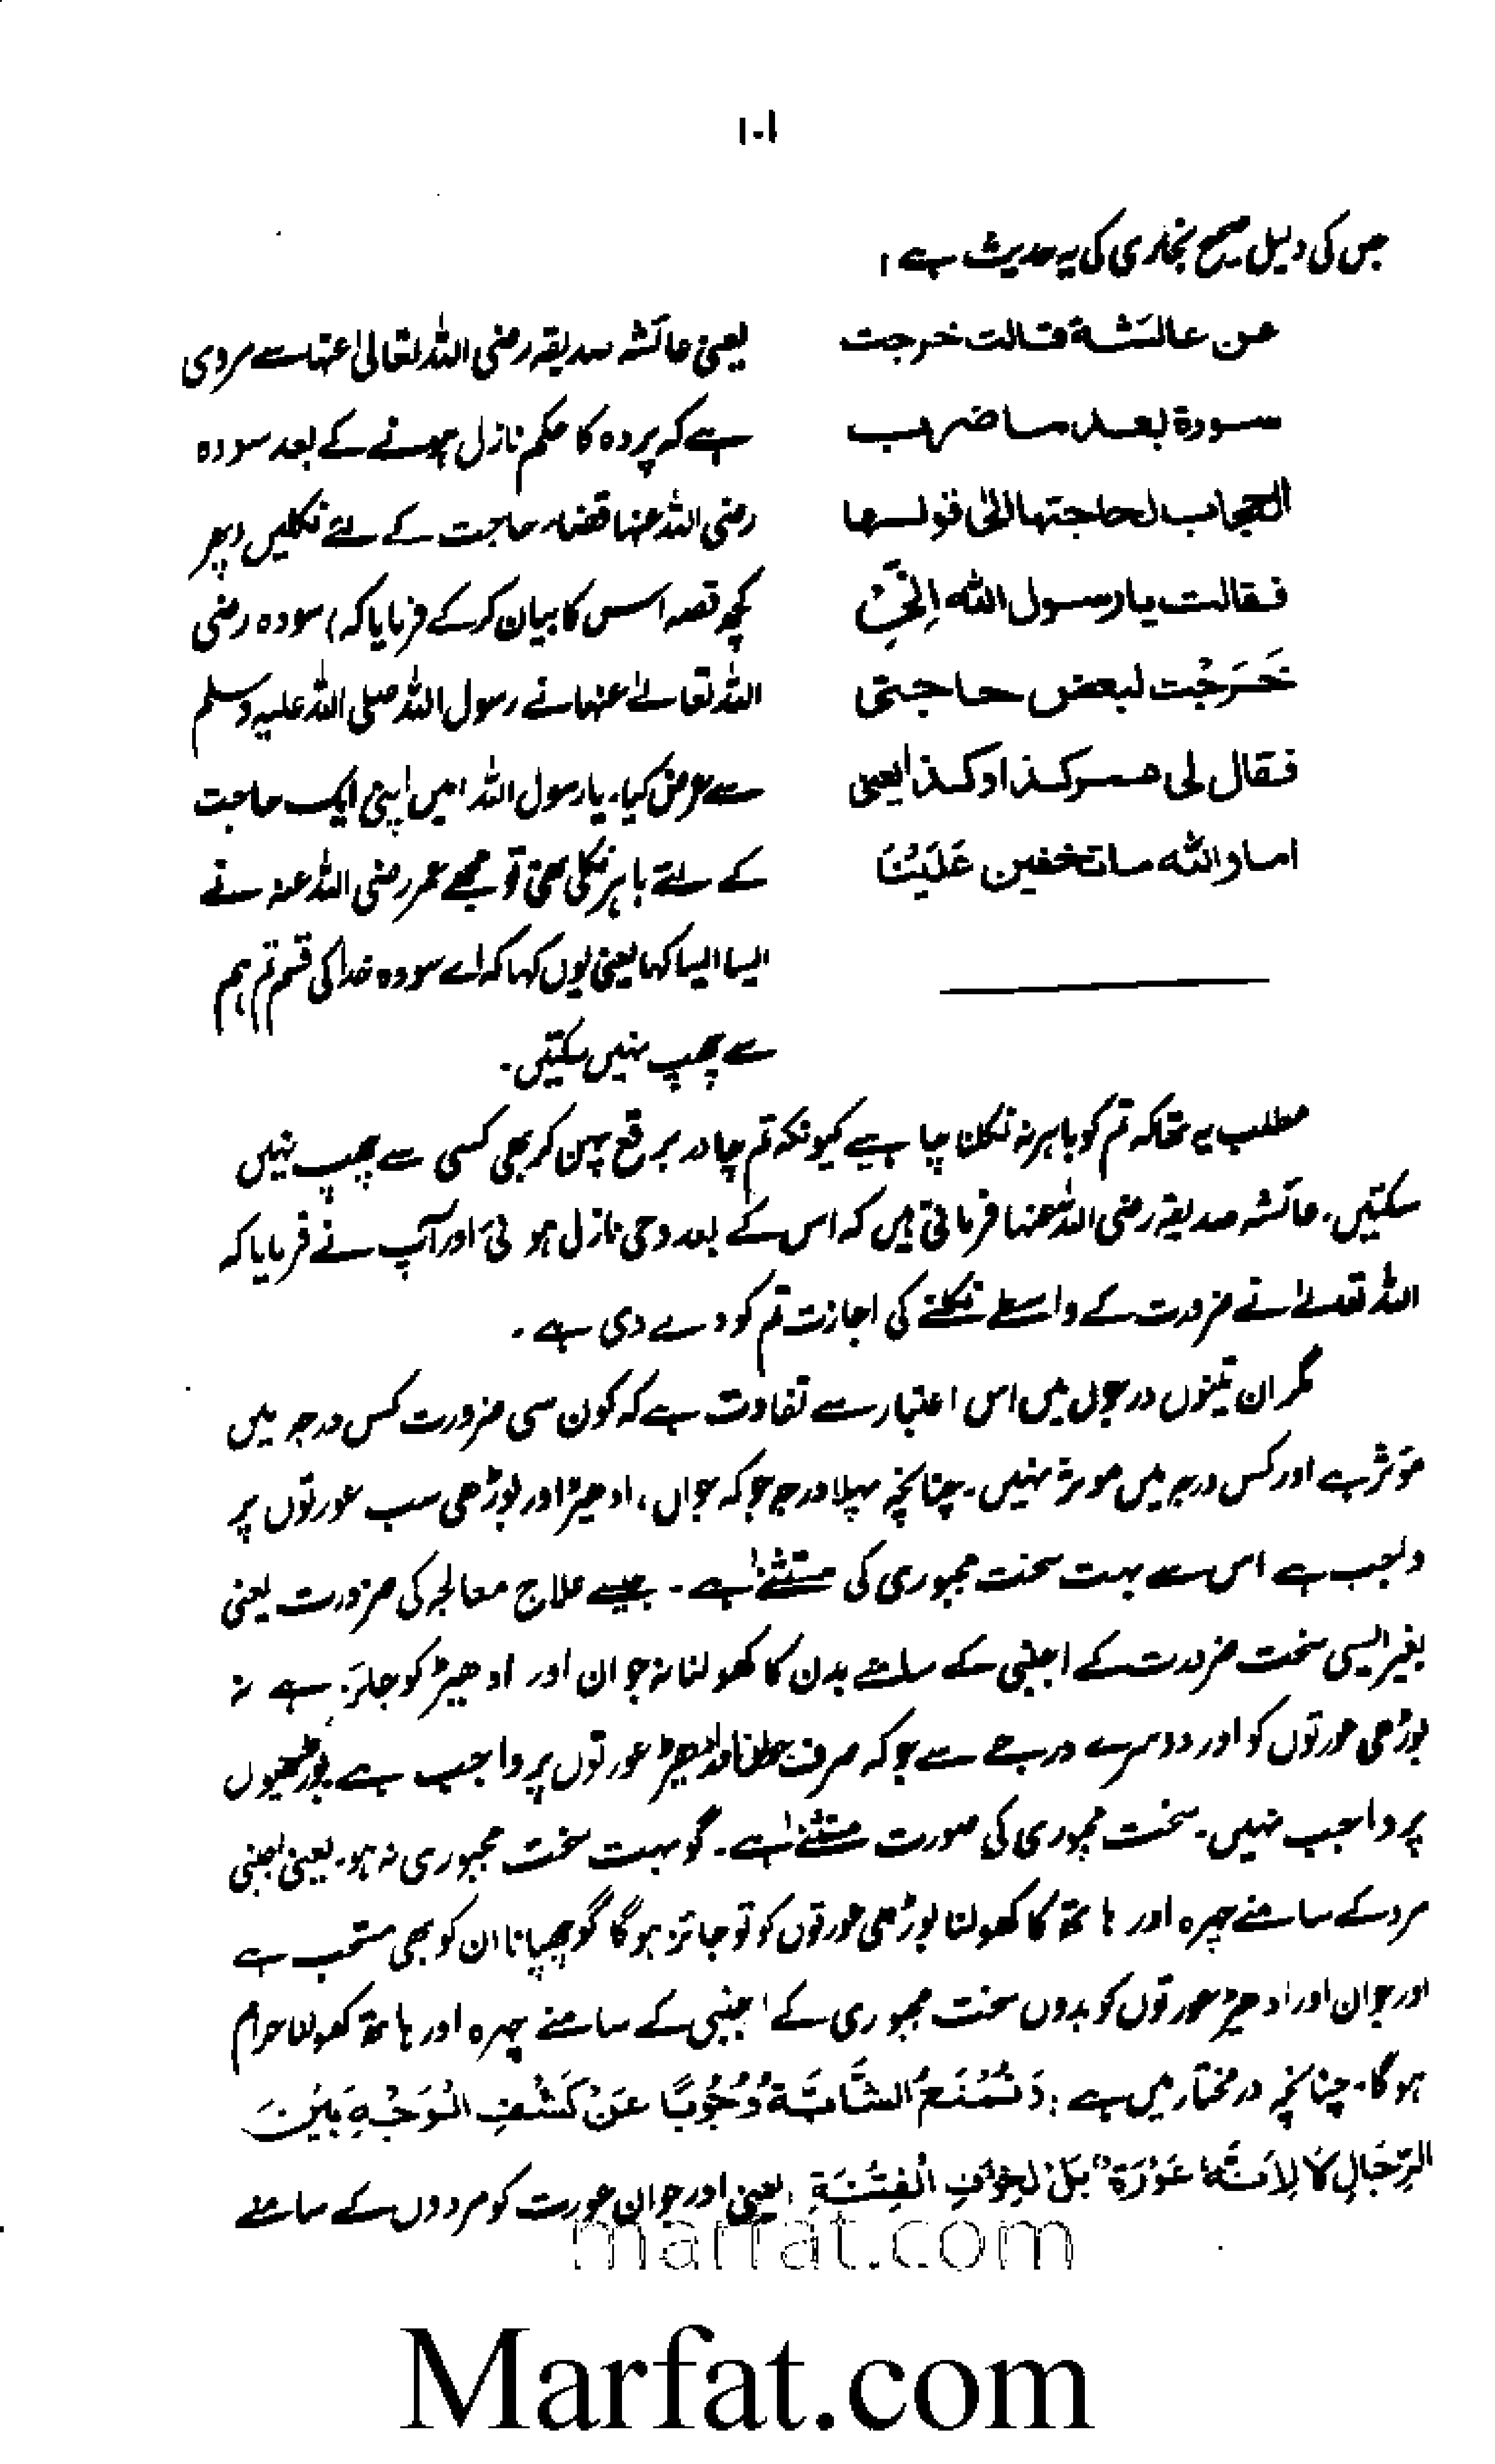 ۱۰۱
جس کی دلیل صحیح بخاری کی یہ حدیث ہے:
عن عائشة قالت خرجت
سودة بعد ما ضرب
الحجاب لحاجتها الی قولها
فقالت یا رسول الله اِنِّیْ
خَرَجْت لبعض حاجتی
فقال لی عمر کذا وکذا یعنی
اما والله ما تخفین عَلَیْنَا
یعنی عائشہ صدیقہ رضی اللہ تعالیٰ عنہا سے مروی
ہے کہ پردہ کا حکم نازل ہونے کے بعد سودہ
رضی اللہ عنہا قضاء حاجت کے لئے نکلیں (پھر
کچھ قصہ اس کا بیان کر کے فرمایا کہ) سودہ رضی
اللہ تعالےٰ عنہا نے رسول اللہ صلی اللہ علیہ وسلم
سے عرض کیا۔ یا رسول اللہ! میں اپنی ایک حاجت
کے لئے باہر نکلی تھی تو مجھے عمر رضی اللہ عنہ نے
ایسا ایسا کہا یعنی یوں کہا کہ اے سودہ خدا کی قسم تم ہم
سے چھپ نہیں سکتیں۔
مطلب یہ تھا کہ تم کو باہر نہ نکلنا چاہیے کیونکہ تم چادر برقع پہن کر بھی کسی سے چھپ نہیں
سکتیں۔ عائشہ صدیقہ رضی اللہ عنہا فرماتی ہیں کہ اس کے بعد وحی نازل ہوئی اور آپ نے فرمایا کہ
اللہ تعالےٰ نے ضرورت کے واسطے نکلنے کی اجازت تم کو دے دی ہے۔
مگر ان تینوں درجوں میں اس اعتبار سے تفاوت ہے کہ کون سی ضرورت کس درجہ میں
مؤثر ہے اور کس درجہ میں موثر نہیں۔ چنانچہ پہلا درجہ جو کہ جواں، ادھیڑ اور بوڑھی سب عورتوں پر
واجب ہے اس سے بہت سخت مجبوری کی مستثنیٰ ہے۔ جیسے علاج معالجہ کی ضرورت یعنی
بغیر ایسی سخت ضرورت کے اجنبی کے سامنے بدن کا کھولنا نہ جوان اور ادھیڑ کو جائز ہے نہ
بوڑھی عورتوں کو اور دوسرے درجے سے جو کہ صرف جوان اور ادھیڑ عورتوں پر واجب ہے بوڑھیوں
پر واجب نہیں۔ سخت مجبوری کی صورت مستثنےٰ ہے۔ گو بہت سخت مجبوری نہ ہو۔ یعنی اجنبی
مرد کے سامنے چہرہ اور ہاتھ کا کھولنا بوڑھی عورتوں کو تو جائز ہوگا گو چھپانا ان کو بھی مستحب ہے
اور جوان اور ادھیڑ عورتوں کو بدوں سخت مجبوری کے اجنبی کے سامنے چہرہ اور ہاتھ کھولنا حرام
ہوگا۔ چنانچہ درمختار میں ہے: وَتُمْنَعُ الشَّابَّةُ وُجُوْبًا عَنْ کَشْفِ الْوَجْهِ بَیْنَ
الرِّجَالِ لَا لِاَنَّهُ عَوْرَةٌ بَلْ لِخَوْفِ الْفِتْنَةِ۔ یعنی اور جوان عورت کو مردوں کے سامنے
marfat.com
Marfat.com